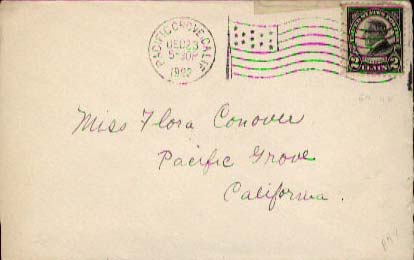 PACIFIC GROVE, CALIF.
DEC 23
5-30P
1922
2 CENTS 2
Miss Flora Conover
Pacific Grove
California.